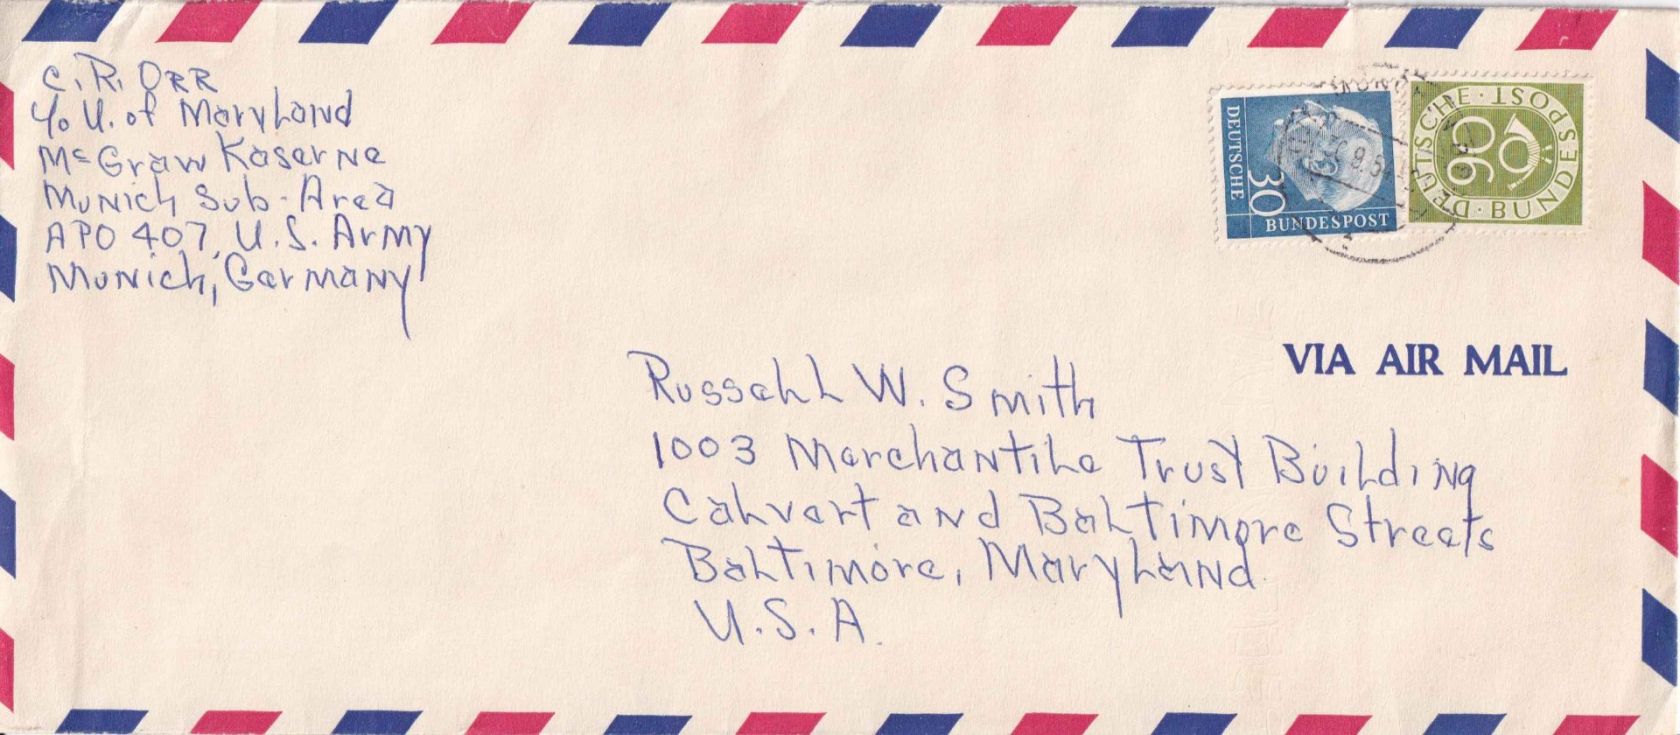 C. R. ORR
c/o U. of Maryland
McGraw Kaserne
Munich Sub-Area
APO 407, U.S. Army
Munich, Germany
DEUTSCHE
30
BUNDESPOST
DEUTSCHE · BUNDESPOST ·
90
VIA AIR MAIL
Russell W. Smith
1003 Merchantile Trust Building
Calvert and Baltimore Streets
Baltimore, Maryland
U.S.A.